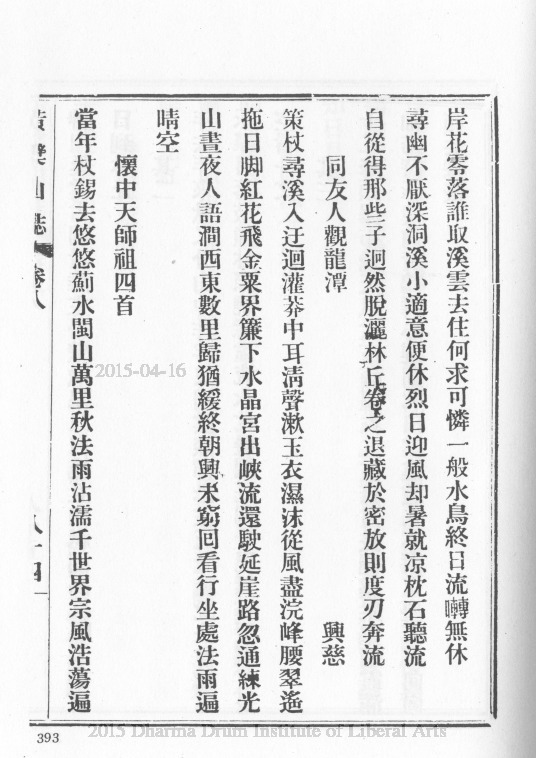 岸花零落誰取溪雲去住何求可憐一般水鳥終日流囀無休
尋幽不厭深洞溪小適意便休烈日迎風却暑就凉枕石聽流
自從得那些子迥然脫灑林丘卷之退藏於密放則度刃奔流
同友人觀龍潭 興慈
策杖尋溪入迂迴灌莽中耳淸聲漱玉衣濕沫從風盡浣峰腰翠遙
拖日脚紅花飛金粟界簾下水晶宮出峽流還駛延崖路忽通練光
山晝夜人語澗西東數里歸猶緩終朝興未窮回看行坐處法雨遍
晴空
懷中天師祖四首
當年杖錫去悠悠薊水閩山萬里秋法雨沾濡千世界宗風浩蕩遍
黃檗山誌 卷八 八十四
2015-04-16
393
2015 Dharma Drum Institute of Liberal Arts